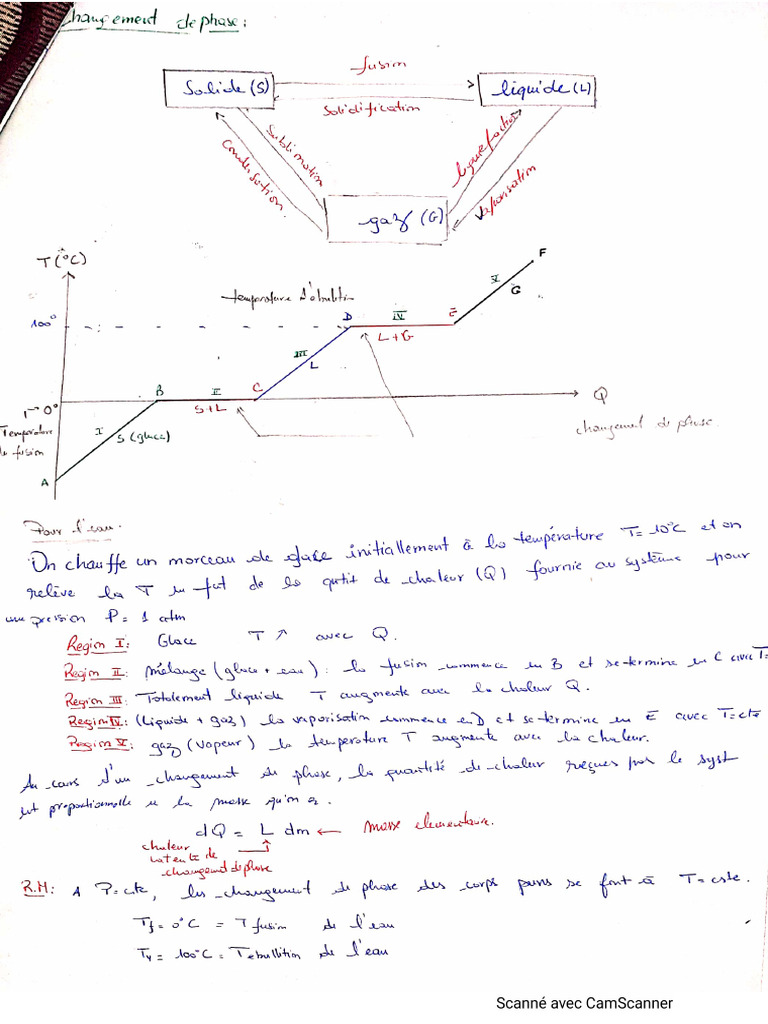 Changement de phase :
fusion
Solide (S)
liquide (L)
Solidification
Sublimation
Condensation
liquefaction
Vaporisation
gaz (G)
T(°C)
F
V
G
température d'ébulition
100°
D
IV
E
L+G
III
L
B
II
C
S+L
Q
0°
Température
de fusion
I
S (glace)
A
changement de phase
Pour l'eau.
On chauffe un morceau de glace initiallement à la température T= 10°C et on
relève la T en fct de la qtit de chaleur (Q) fournie au système pour
une pression P= 1 atm
Region I: Glace T ↗ avec Q.
Region II: mélange (glace + eau) : la fusion commence en B et se termine en C avec T=
Region III: Totalement liquide T augmente avec la chaleur Q.
Region IV: (Liquide + gaz) la vaporisation commence en D et se termine en E avec T=cte
Region V: gaz (vapeur) la température T augmente avec la chaleur.
Au cours d'un changement de phase, la quantité de chaleur reçues par le syst
est proportionnelle à la masse qu'on a.
dQ = L dm ← Masse elementaire.
chaleur
latente de
changement de phase
R.M: A P=cte, les changement de phase des corps purs se font à T=cste.
Tf= 0°C = T fusion de l'eau
Tv = 100°C = T ebullition de l'eau
Scanné avec CamScanner